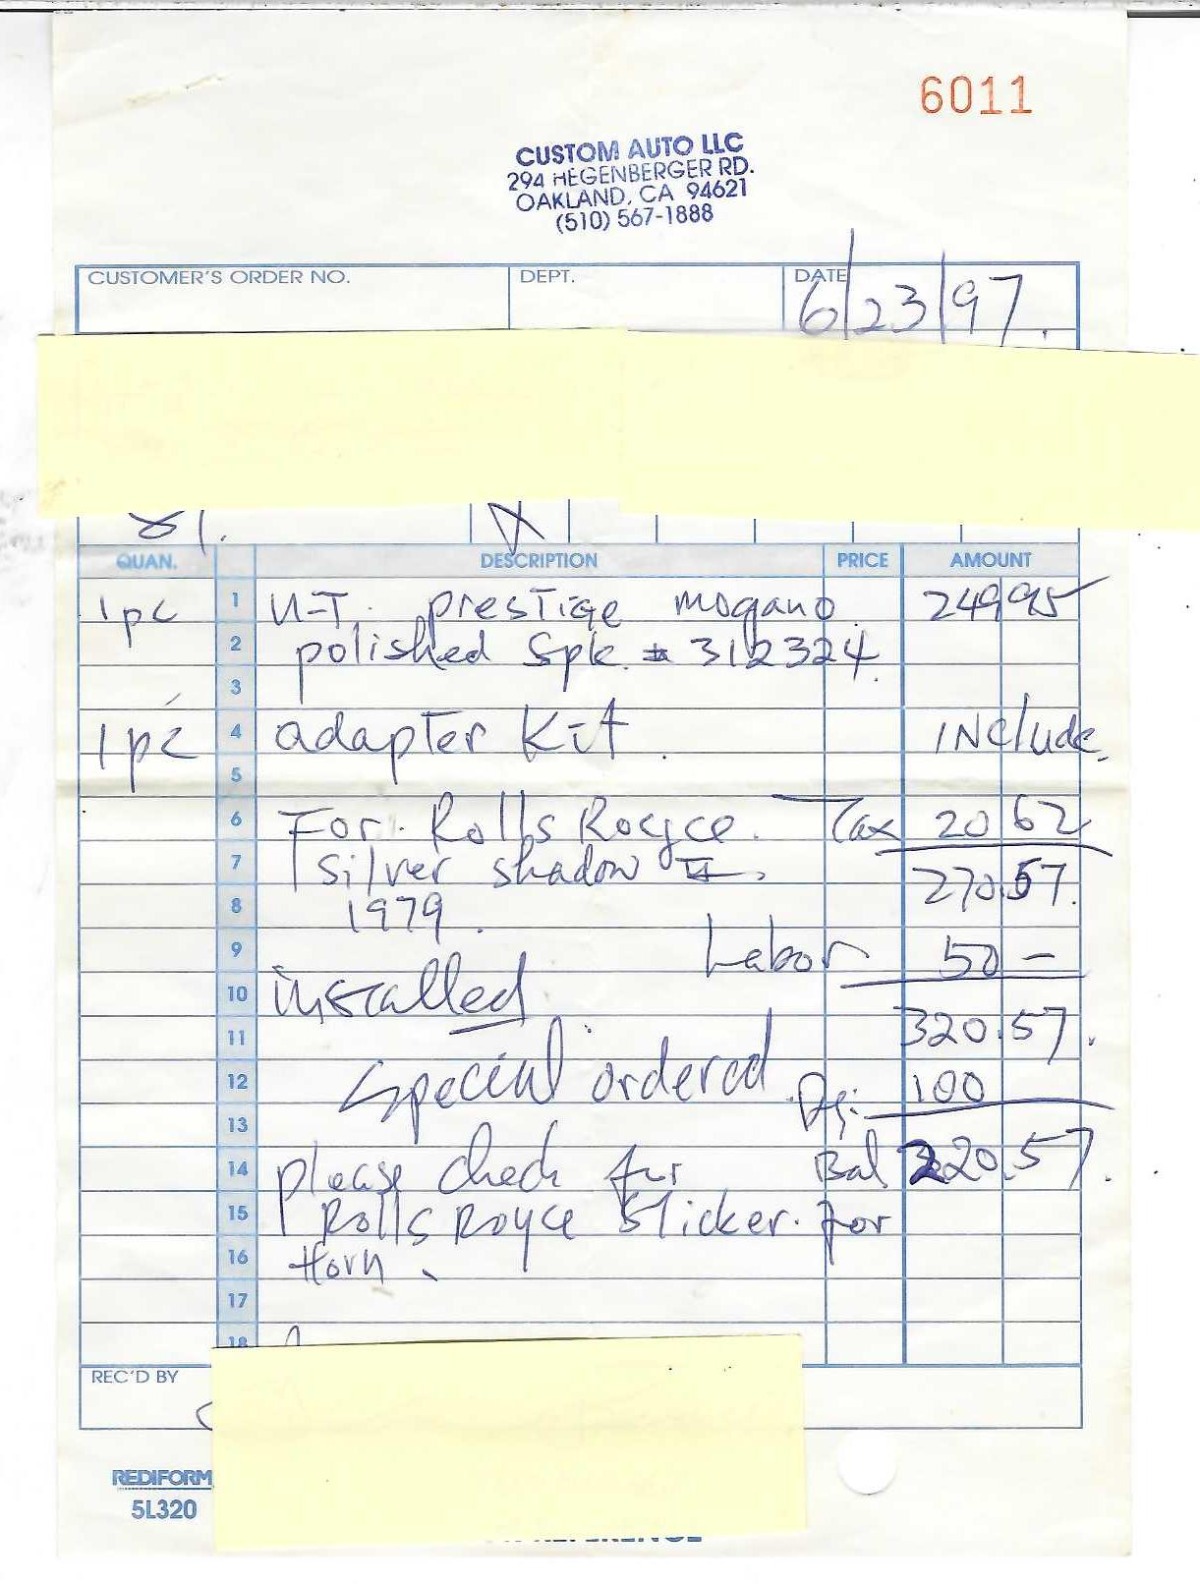 6011
CUSTOM AUTO LLC
294 HEGENBERGER RD.
OAKLAND, CA 94621
(510) 567-1888
CUSTOMER'S ORDER NO. DEPT. DATE 6/23/97.
QUAN. DESCRIPTION PRICE AMOUNT
1pc 1 N-T. prestige mogano 24995
2 polished Spk. # 312324.
3
1pc 4 adapter Kit. INclude.
5
6 For. Rolls Royce. Tax 20 62
7 Silver shadow II. 270.57.
8 1979.
9 Labor 50 -
10 installed
11 320.57.
12 Special ordered 100
13
14 please check for Bal 220.57.
15 Rolls Royce sticker. for
16 Horn.
17
18
REC'D BY
REDIFORM
5L320